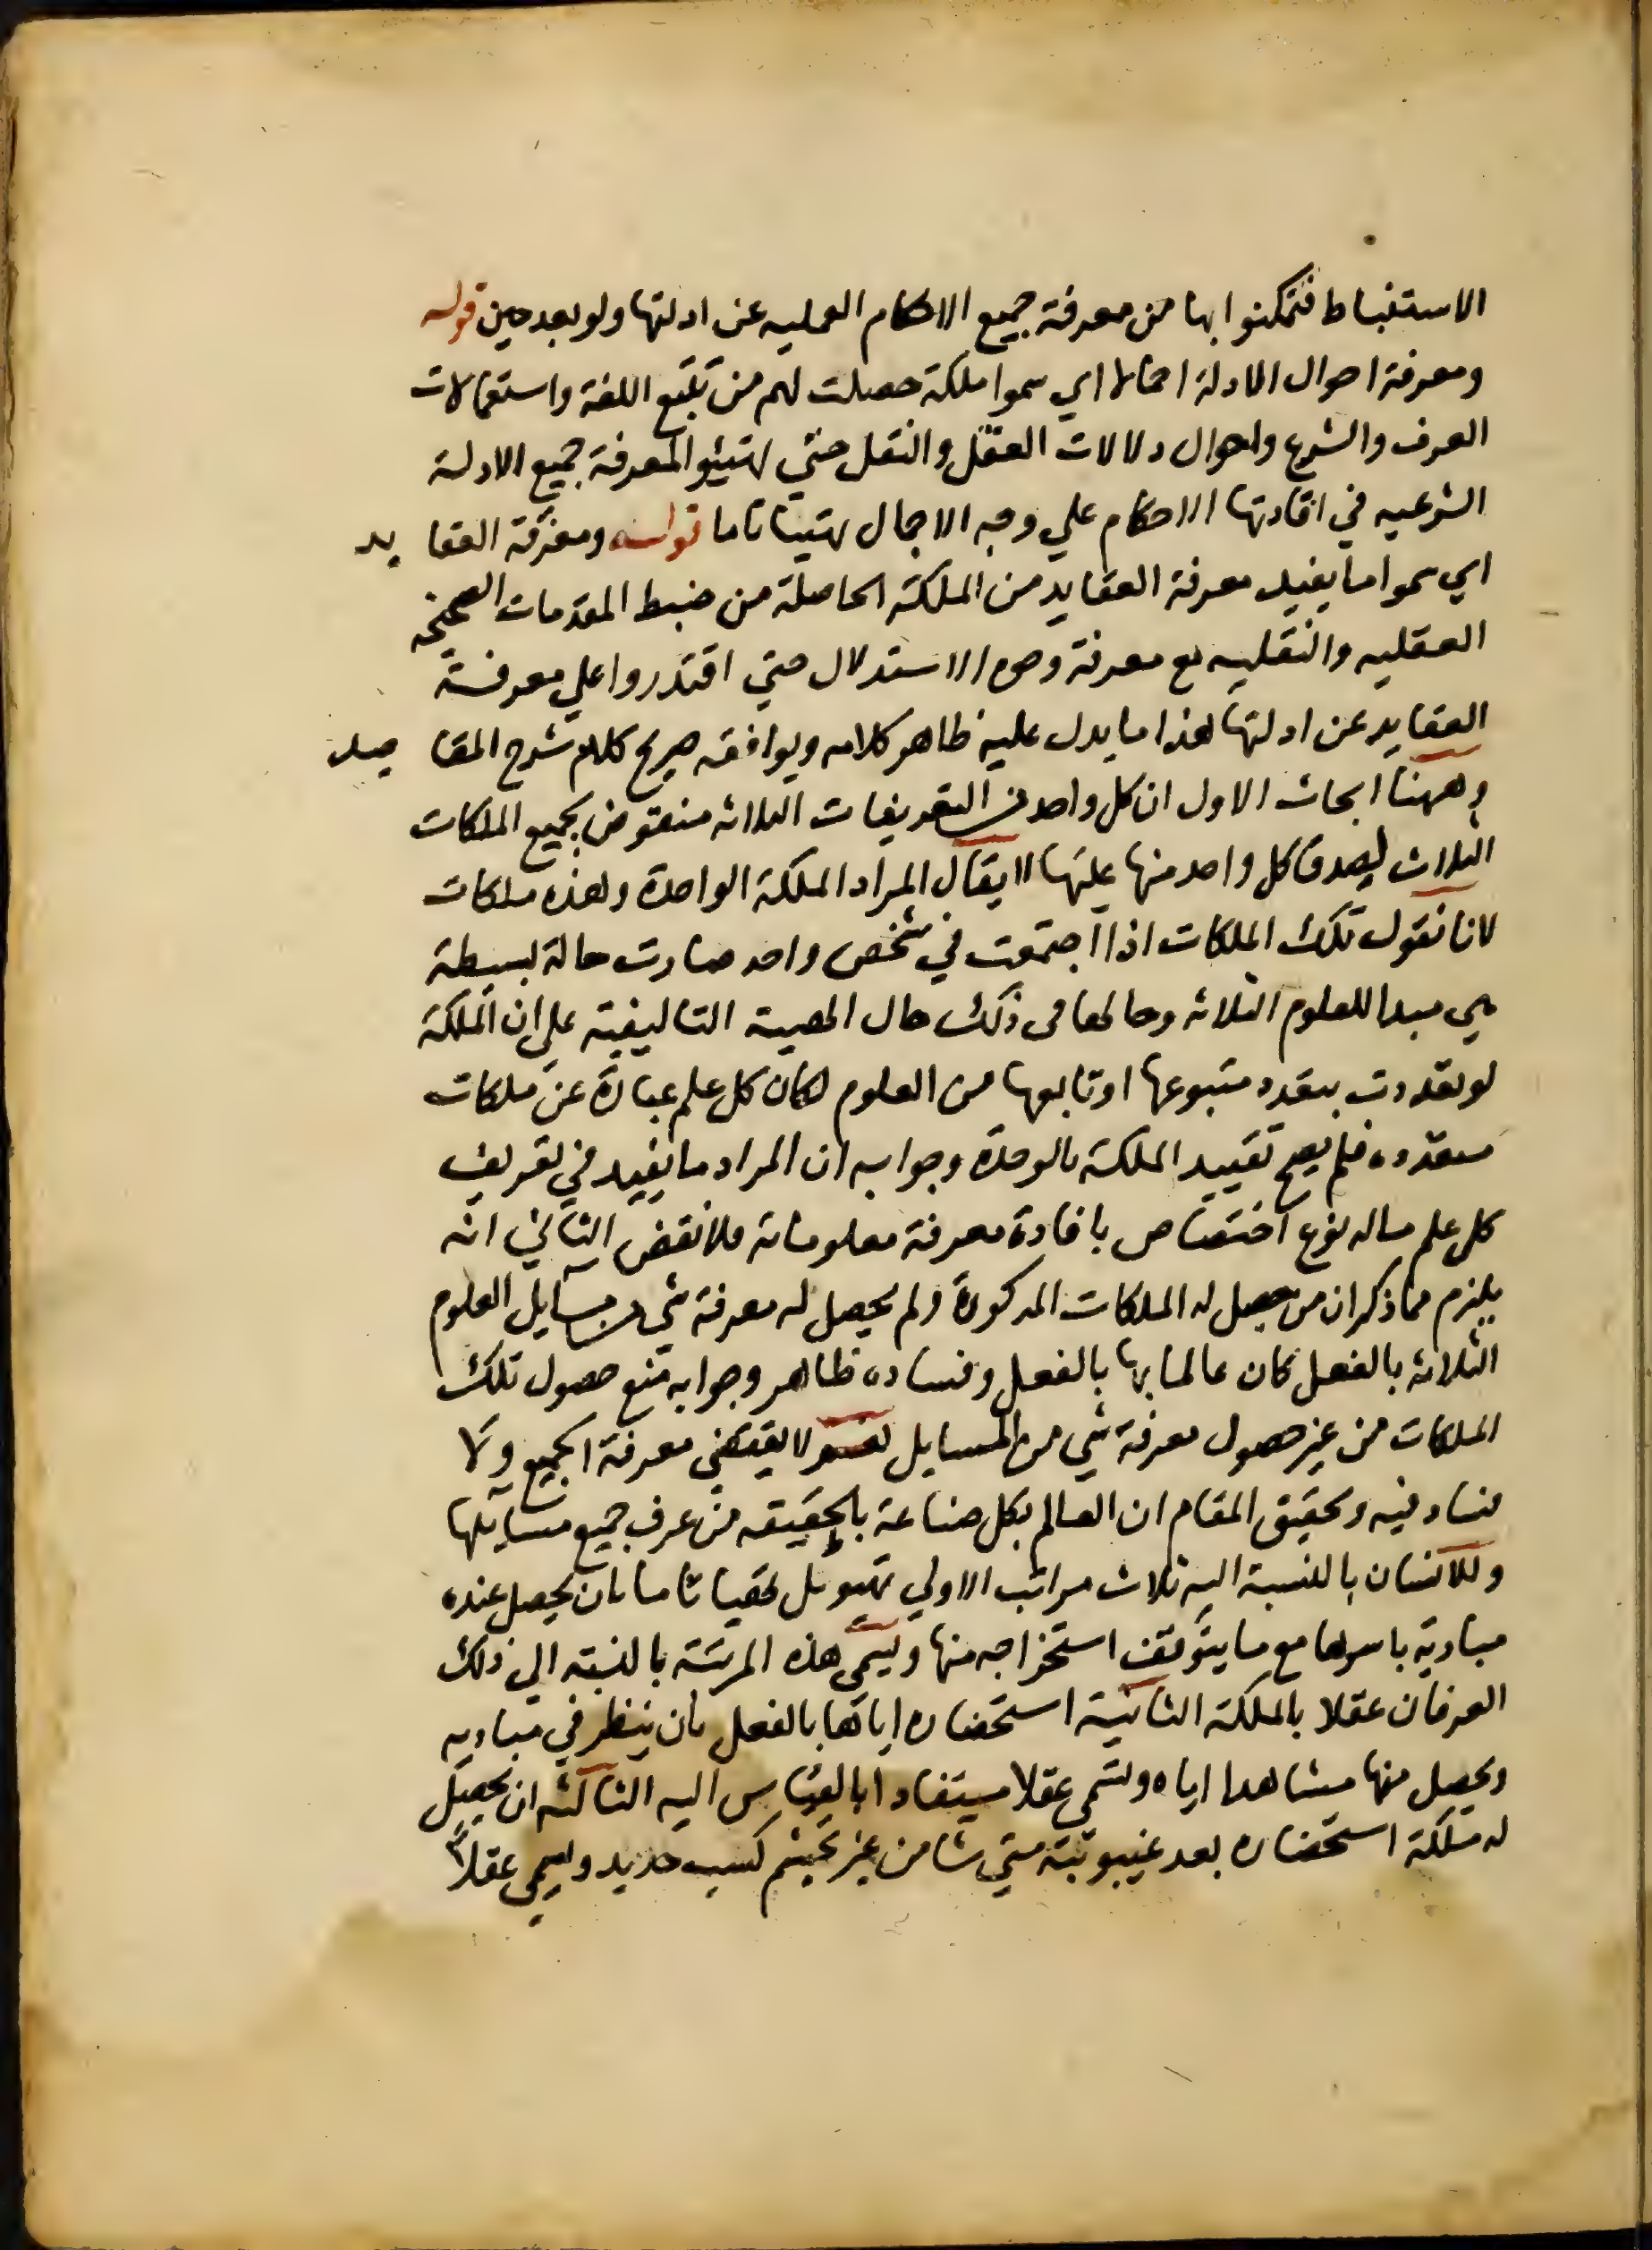 الاستنباط فتمكنوا بها من معرفة جميع الاحكام العمليه عن ادلتها ولو بعد حين قوله
ومعرفة احوال الادلة اجمالا اي سموا ملكة حصلت لهم من تتبع اللغة واستعمالات
العرف والشرع واحوال دلالات العقل والنقل حتي تهيئوا لمعرفة جميع الادلة
الشرعيه في افادتها الاحكام علي وجه الاجمال تهيئا تاما قوله ومعرفة العقايد
اي سموا ما يفيد معرفة العقايد من الملكة الحاصلة من ضبط المقدمات الصحيحة
العقليه والنقليه مع معرفة وجوه الاستدلال حتي اقتدروا علي معرفة
العقايد عن ادلتها هذا ما يدل عليه ظاهر كلامه ويوافقه صريح كلام شرح المقاصد
وههنا ابحاث الاول ان كل واحد من التعريفات الثلاثه منقوض بجميع الملكات
الثلاث ليصدق كل واحد منها عليها لا يقال المراد الملكة الواحدة وهذه ملكات
لانا نقول تلك الملكات اذا اجتمعت في شخص واحد صارت حالة بسيطة
هي مبدا للعلوم الثلاثه وحالها في ذلك حال الهيئة التاليفية علي ان الملكة
لو تعددت بتعدد متبوعها او تابعها من العلوم لكان كل علم عبارة عن ملكات
متعدده فلم يصح تقييد الملكة بالوحدة وجوابه ان المراد ما يفيد في تعريف
كل علم ماله نوع اختصاص بافادة معرفة معلوماته فلا نقض الثاني انه
يلزم مما ذكر ان من حصل له الملكات المذكورة ولم يحصل له معرفة شي من مسايل العلوم
الثلاثه بالفعل كان عالما بها بالفعل وفساده ظاهر وجوابه منع حصول تلك
الملكات من غير حصول معرفة شي من المسايل نعم لا يقتضي معرفة الجميع ولا
فساد فيه وتحقيق المقام ان العالم بكل صناعة بالحقيقه من عرف جميع مسايلها
وللانسان بالنسبة اليه ثلاث مراتب الاولي تهيؤ تاما بان يحصل عنده
مباديه باسرها مع ما يتوقف استخراجه منها ويسمي هذه المرتبة بالنسبه الي ذلك
العرفان عقلا بالملكة الثانية استحضاره اياها بالفعل بان ينظر في مباديه
ويحصل منها مشاهدا اياه ولتسمي عقلا مستفادا بالقياس اليه الثالثه ان يحصل
له ملكة استحضاره بعد غيبوبته متي شا من غير تجشم كسب جديد ويسمي عقلاً